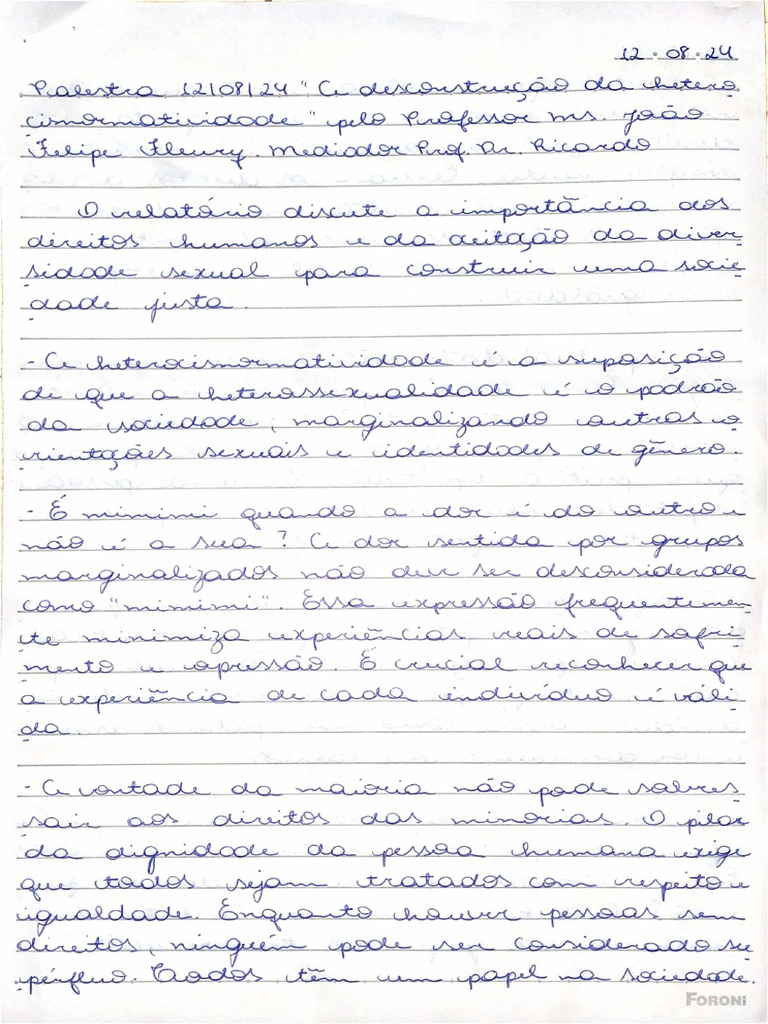 12.08.24
Palestra 12/08/24 "A desconstrução da hetero
cisnormatividade" pelo Professor Ms. João
Felipe Fleury. Mediador Prof. Dr. Ricardo
O relatório discute a importância dos
direitos humanos e da aceitação da diver
sidade sexual para construir uma socie
dade justa.
- A heterocisnormatividade é a suposição
de que a heterossexualidade é o padrão
da sociedade, marginalizando outras o
rientações sexuais e identidades de gênero.
- É mimimi quando a dor é do outro e
não é a sua? A dor sentida por grupos
marginalizados não deve ser desconsiderada
como "mimimi". Essa expressão frequentemen
te minimiza experiências reais de sofri
mento e opressão. É crucial reconhecer que
a experiência de cada indivíduo é váli
da.
- A vontade da maioria não pode sobres
sair aos direitos das minorias. O pilar
da dignidade da pessoa humana exige
que todos sejam tratados com respeito e
igualdade. Enquanto houver pessoas sem
direitos, ninguém pode ser considerado su
pérfluo. Todos têm um papel na sociedade.
FORONI